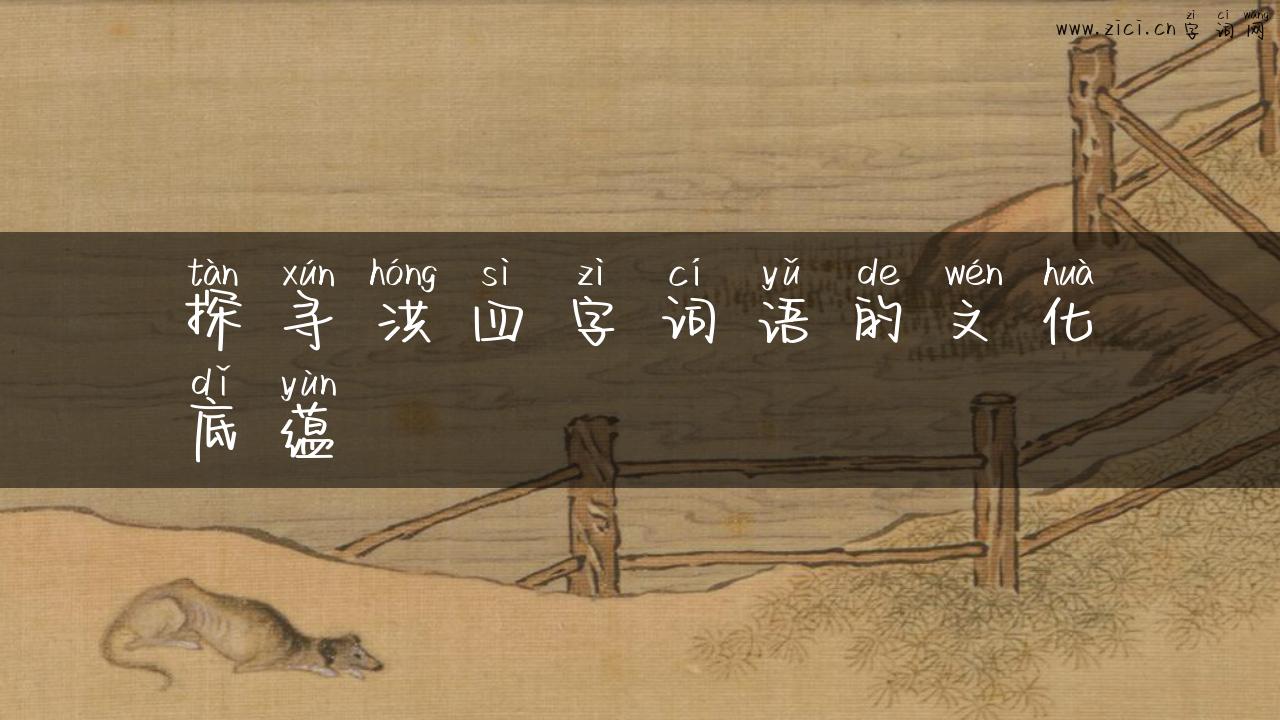 zì cí wǎng
www.zici.cn 字词网
tàn xún hóng sì zì cí yǔ de wén huà
探寻洪四字词语的文化
dǐ yùn
底蕴